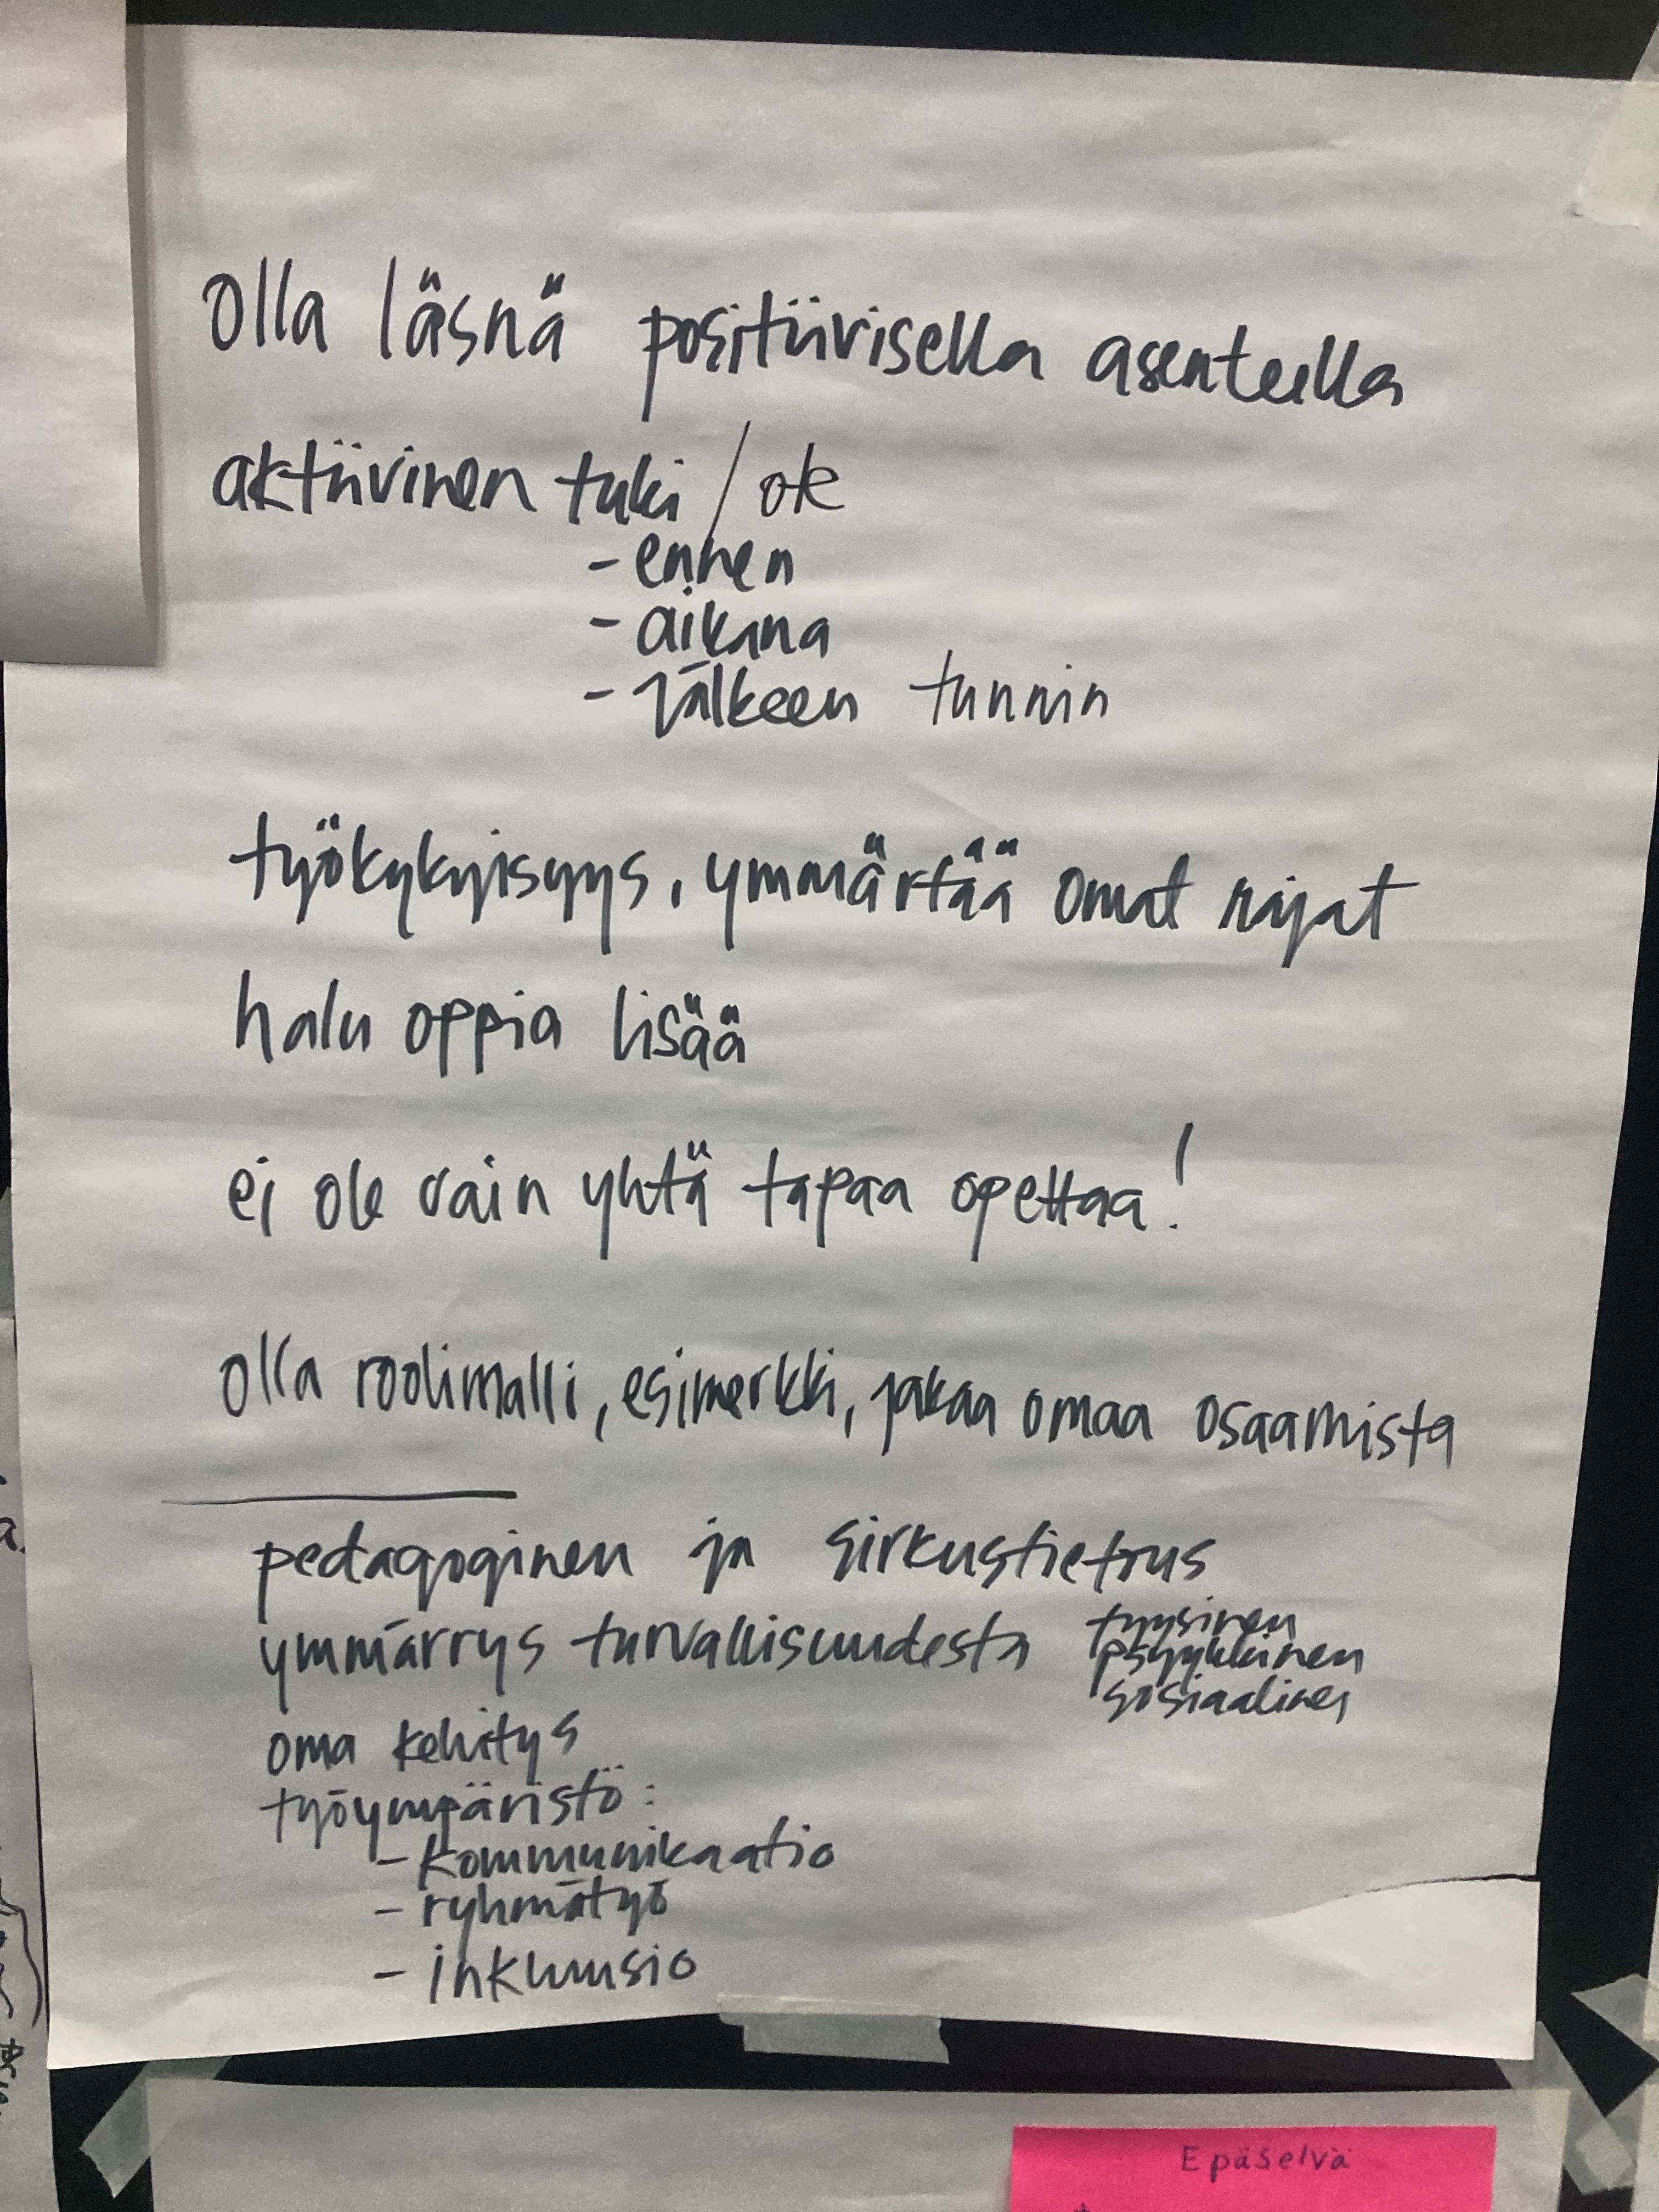 olla läsnä positiivisella asenteella
aktiivinen tuki / ok
- ennen
- aikana
- jälkeen tunnin
työkykyisyys, ymmärtää omat rajat
halu oppia lisää
ei ole vain yhtä tapaa opettaa!
olla roolimalli, esimerkki, jakaa omaa osaamista
pedagoginen ja sirkustietous
ymmärrys turvallisuudesta fyysinen
psyykkinen
sosiaalinen
oma kehitys
työympäristö:
- kommunikaatio
- ryhmätyö
- inkluusio
Epäselvä